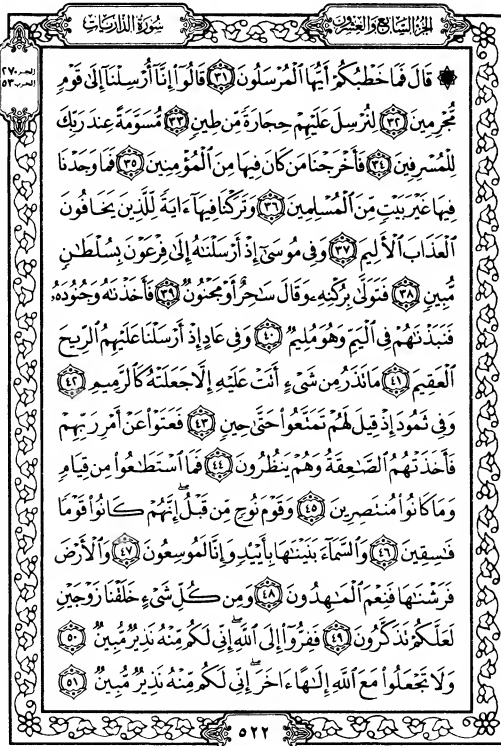 سُورَةُ الذَّارِيَاتِ
الجُزْءُ السَّابِعُ وَالعِشْرُونَ
الحزب ٢٧
الحزب ٥٣
۞ قَالَ فَمَا خَطْبُكُمْ أَيُّهَا ٱلْمُرْسَلُونَ ٣١ قَالُوٓا۟ إِنَّآ أُرْسِلْنَآ إِلَىٰ قَوْمٍ
مُّجْرِمِينَ ٣٢ لِنُرْسِلَ عَلَيْهِمْ حِجَارَةً مِّن طِينٍ ٣٣ مُّسَوَّمَةً عِندَ رَبِّكَ
لِلْمُسْرِفِينَ ٣٤ فَأَخْرَجْنَا مَن كَانَ فِيهَا مِنَ ٱلْمُؤْمِنِينَ ٣٥ فَمَا وَجَدْنَا
فِيهَا غَيْرَ بَيْتٍ مِّنَ ٱلْمُسْلِمِينَ ٣٦ وَتَرَكْنَا فِيهَآ ءَايَةً لِّلَّذِينَ يَخَافُونَ
ٱلْعَذَابَ ٱلْأَلِيمَ ٣٧ وَفِى مُوسَىٰٓ إِذْ أَرْسَلْنَٰهُ إِلَىٰ فِرْعَوْنَ بِسُلْطَٰنٍ
مُّبِينٍ ٣٨ فَتَوَلَّىٰ بِرُكْنِهِۦ وَقَالَ سَٰحِرٌ أَوْ مَجْنُونٌ ٣٩ فَأَخَذْنَٰهُ وَجُنُودَهُۥ
فَنَبَذْنَٰهُمْ فِى ٱلْيَمِّ وَهُوَ مُلِيمٌ ٤٠ وَفِى عَادٍ إِذْ أَرْسَلْنَا عَلَيْهِمُ ٱلرِّيحَ
ٱلْعَقِيمَ ٤١ مَا تَذَرُ مِن شَىْءٍ أَتَتْ عَلَيْهِ إِلَّا جَعَلَتْهُ كَٱلرَّمِيمِ ٤٢
وَفِى ثَمُودَ إِذْ قِيلَ لَهُمْ تَمَتَّعُوا۟ حَتَّىٰ حِينٍ ٤٣ فَعَتَوْا۟ عَنْ أَمْرِ رَبِّهِمْ
فَأَخَذَتْهُمُ ٱلصَّٰعِقَةُ وَهُمْ يَنظُرُونَ ٤٤ فَمَا ٱسْتَطَٰعُوا۟ مِن قِيَامٍ
وَمَا كَانُوا۟ مُنتَصِرِينَ ٤٥ وَقَوْمَ نُوحٍ مِّن قَبْلُ ۖ إِنَّهُمْ كَانُوا۟ قَوْمًا
فَٰسِقِينَ ٤٦ وَٱلسَّمَآءَ بَنَيْنَٰهَا بِأَيْي۟دٍ وَإِنَّا لَمُوسِعُونَ ٤٧ وَٱلْأَرْضَ
فَرَشْنَٰهَا فَنِعْمَ ٱلْمَٰهِدُونَ ٤٨ وَمِن كُلِّ شَىْءٍ خَلَقْنَا زَوْجَيْنِ
لَعَلَّكُمْ تَذَكَّرُونَ ٤٩ فَفِرُّوٓا۟ إِلَى ٱللَّهِ ۖ إِنِّى لَكُم مِّنْهُ نَذِيرٌ مُّبِينٌ ٥٠
وَلَا تَجْعَلُوا۟ مَعَ ٱللَّهِ إِلَٰهًا ءَاخَرَ ۖ إِنِّى لَكُم مِّنْهُ نَذِيرٌ مُّبِينٌ ٥١
٥٢٢